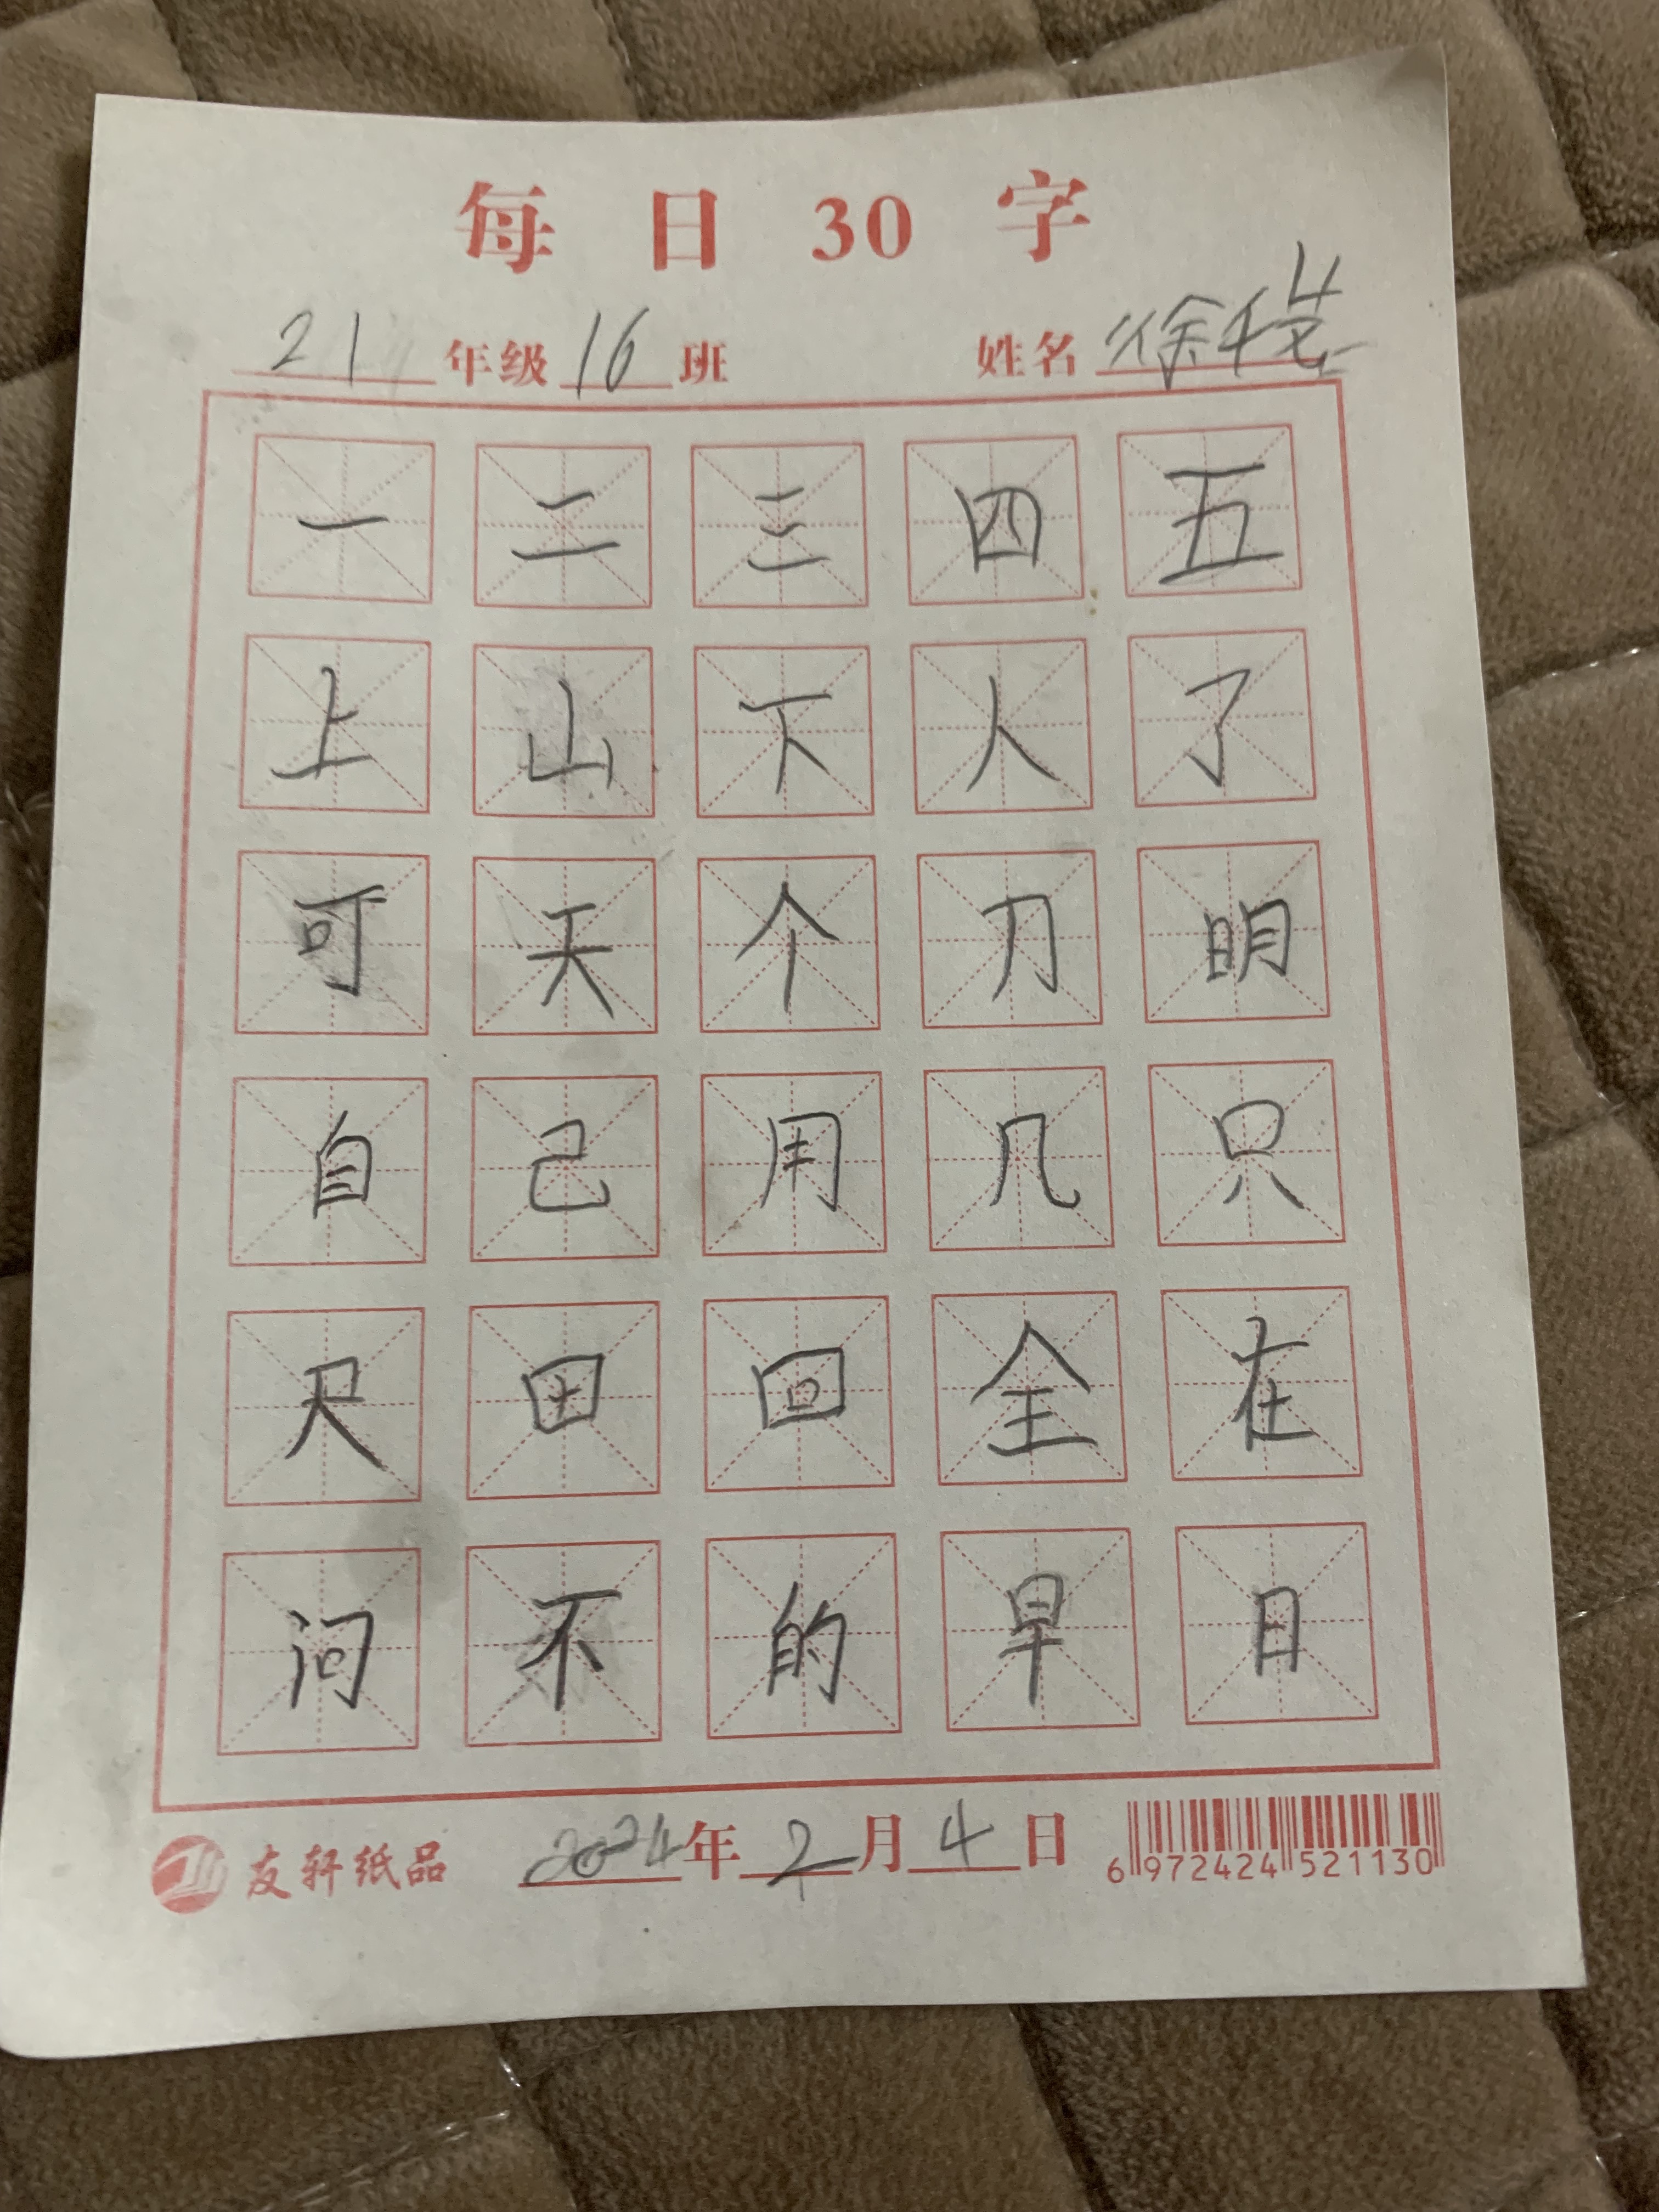 每日30字
21年级16班 姓名徐
一二三四五
上山下人了
可天个刀明
自己用几只
尺田回全在
问不的早日
友轩纸品 2024年2月4日 6972424521130